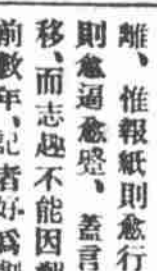 離、惟報紙則愈行
則愈逼愈蹙、蓋言
移、而志趣不能因
前數年、記者好爲